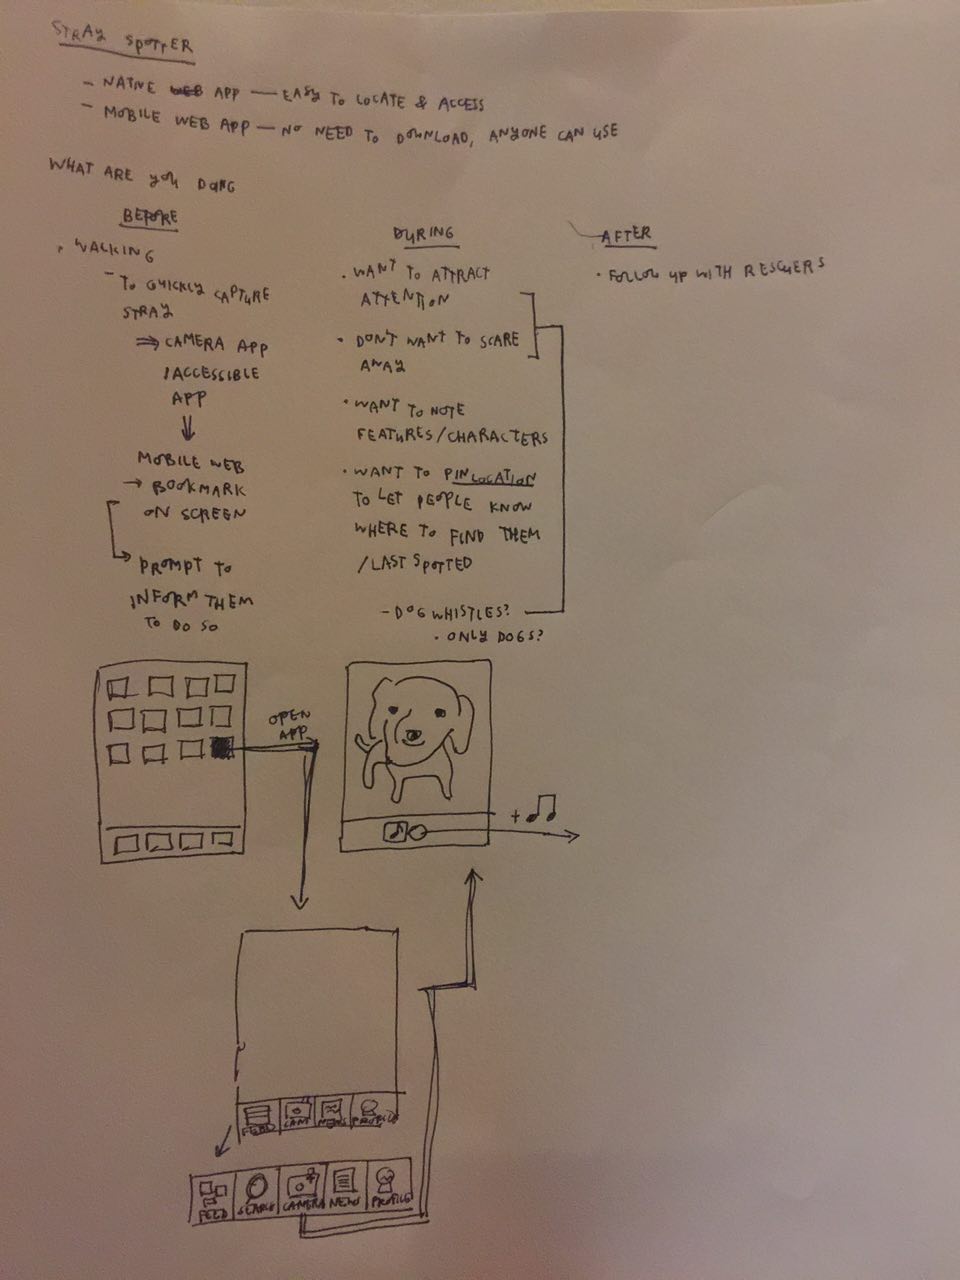 STRAY SPOTTER
- NATIVE WEB APP — EASY TO LOCATE & ACCESS
- MOBILE WEB APP — NO NEED TO DOWNLOAD, ANYONE CAN USE
WHAT ARE YOU DOING
BEFORE
• WALKING
- TO QUICKLY CAPTURE
STRAY
⇒ CAMERA APP
/ACCESSIBLE
APP
↓
MOBILE WEB
→ BOOKMARK
ON SCREEN
→ PROMPT TO
INFORM THEM
TO DO SO
DURING
• WANT TO ATTRACT
ATTENTION
• DON'T WANT TO SCARE
AWAY
• WANT TO NOTE
FEATURES/CHARACTERS
• WANT TO PIN LOCATION
TO LET PEOPLE KNOW
WHERE TO FIND THEM
/LAST SPOTTED
- DOG WHISTLES?
• ONLY DOGS?
AFTER
• FOLLOW UP WITH RESCUERS
OPEN
APP
+ ♫
FEED NEWS PROFILE
FEED SEARCH CAMERA NEWS PROFILE